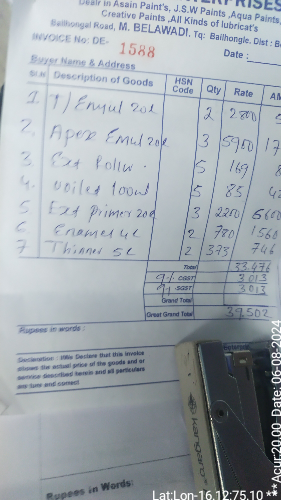 ERPRISES
Dealr in Asain Paint's, J.S.W Paints ,Aqua Paints,
Creative Paints ,All Kinds of lubricat's
Bailhongal Road, M. BELAWADI. Tq: Bailhongle. Dist : B
INVOICE No: DE- 1588
Date :
Buyer Name & Address
Sl.N Description of Goods HSN Code Qty Rate AM
1. T/Emul 20L 2 2800 5
2. Apex Emul 20L 3 5900 17
3. Ext Rollw . 5 169 8
4. 5 85 42
5 Ext primer 20L 3 2200 6600
6 Enamel 4L 2 780 1560
7 Thinner 5L 2 373 746
Total 33.476
9% CGST 3013
9% SGST 3013
Grand Total
Great Grand Total 39,502
Rupees in words :
Declaration : We Declare that this invoice
shows the actual price of the goods and or
service described herein and all particulars
are ture and correct
KANGARO
Rupees in Words:
Lat:Lon-16.12:75.10
**Acur:20.00 Date: 06-08-2024